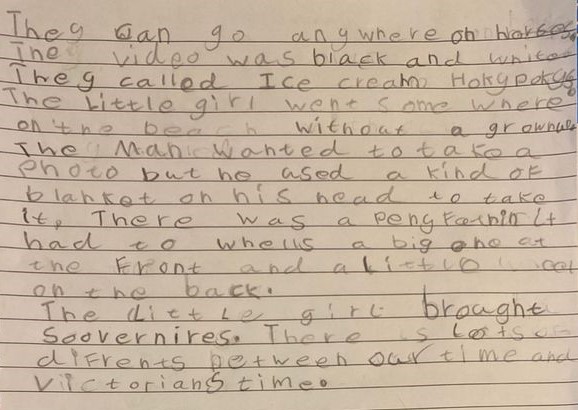 They can go anywhere on horses
The video was black and white
They called Ice cream Hokypokys
The Little girl went some where
on the beach without a grownup
The Man Wanted to take a
photo but he used a kind of
blanket on his head to take
it. There was a penyfarthin It
had to whells a big one at
the Front and a little
on the back.
The Little girl brought
Soovernires. There is Lots of
difrents between our time and
Victorians time.